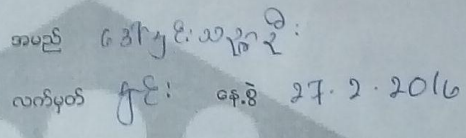 အမည် ဒေါ်ကျင်းသဏ္ဍာဦး
လက်မှတ် ကျင်း နေ့စွဲ 27.2.2016